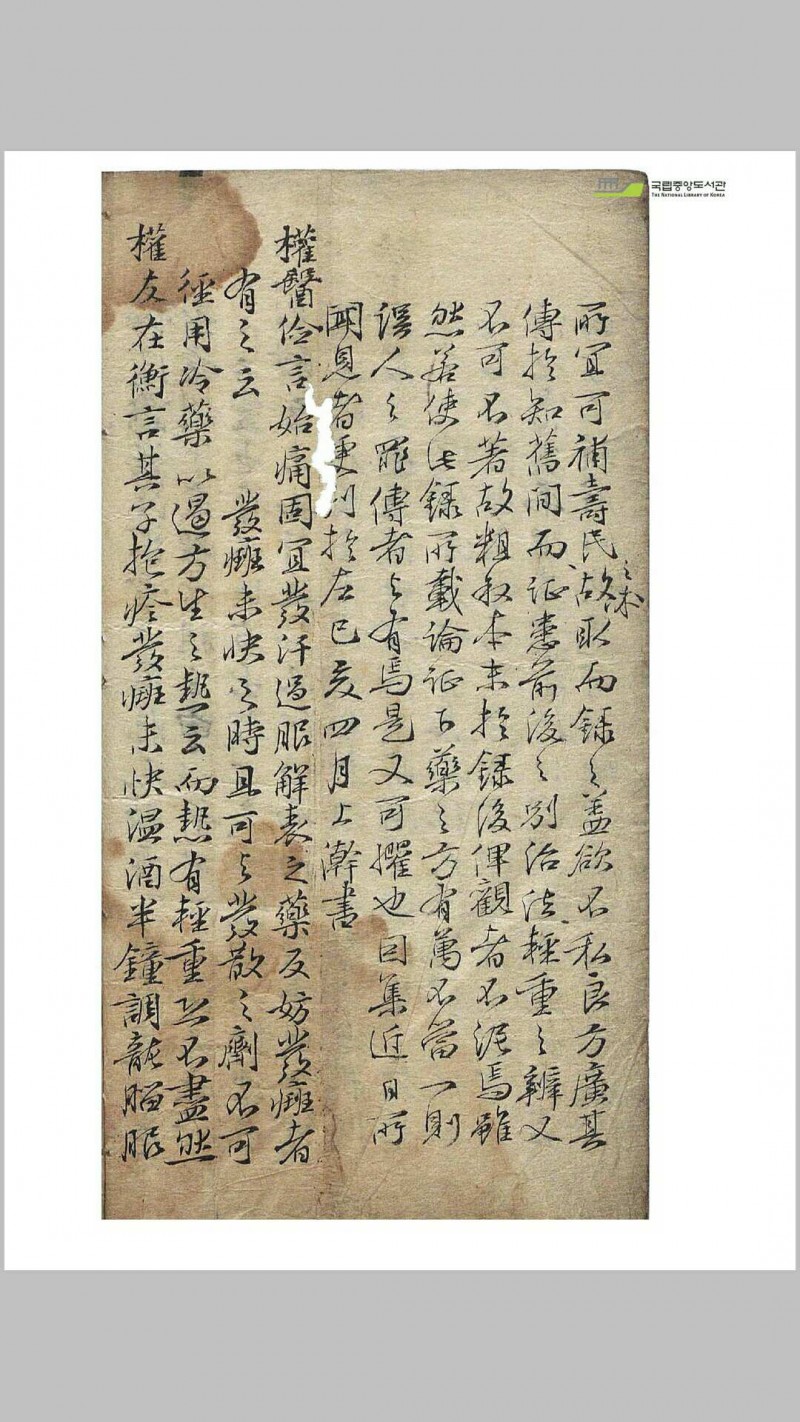 국립중앙도서관
THE NATIONAL LIBRARY OF KOREA
所宜可補壽民之术故取而錄之蓋欲不私良方廣其
傳於知舊間而證患前後之別治法輕重之辨又
不可不著故粗叙本末於錄後俾觀者不泥焉雖
然若使此錄所載論証下藥之方有萬不當一則
誤人之罪傳者与有焉是又可懼也因集近日所
聞見者更列於左己亥四月上澣書
權醫伶言始痛固宜發汗過服解表之藥反妨發癍者
有之云 發癍未快之時且可与發散之劑不可
徑用冷藥以遏方生之熱云而熱有輕重恐不盡然
權友在衡言其子抱疹發癍未快温酒半鐘調龍脑服